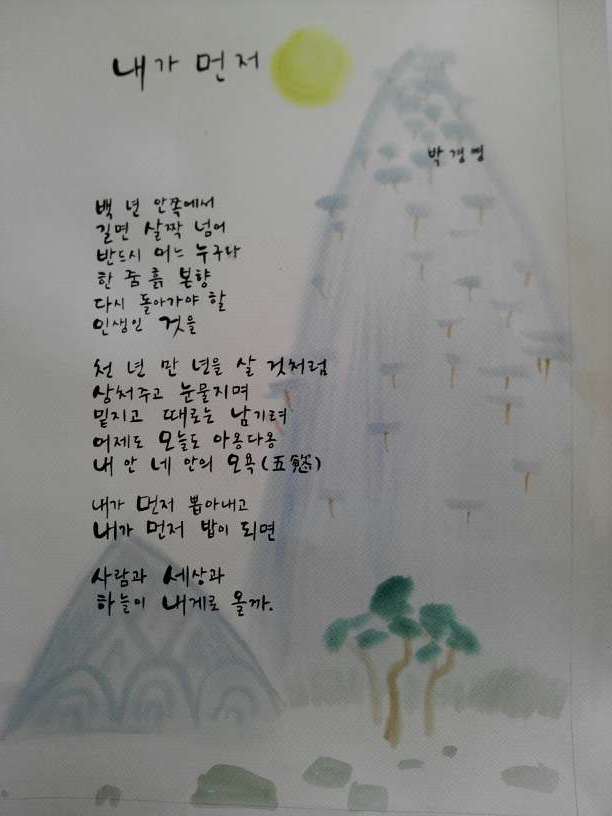 내가 먼저
박경명
백 년 안쪽에서
길면 살짝 넘어
반드시 어느 누구나
한 줌 흙 본향
다시 돌아가야 할
인생인 것을
천 년 만 년을 살 것처럼
상처주고 눈물지며
밑지고 때로는 남기려
어제도 오늘도 아옹다옹
내 안 네 안의 오욕(五慾)
내가 먼저 뽑아내고
내가 먼저 밥이 되면
사람과 세상과
하늘이 내게로 올까.